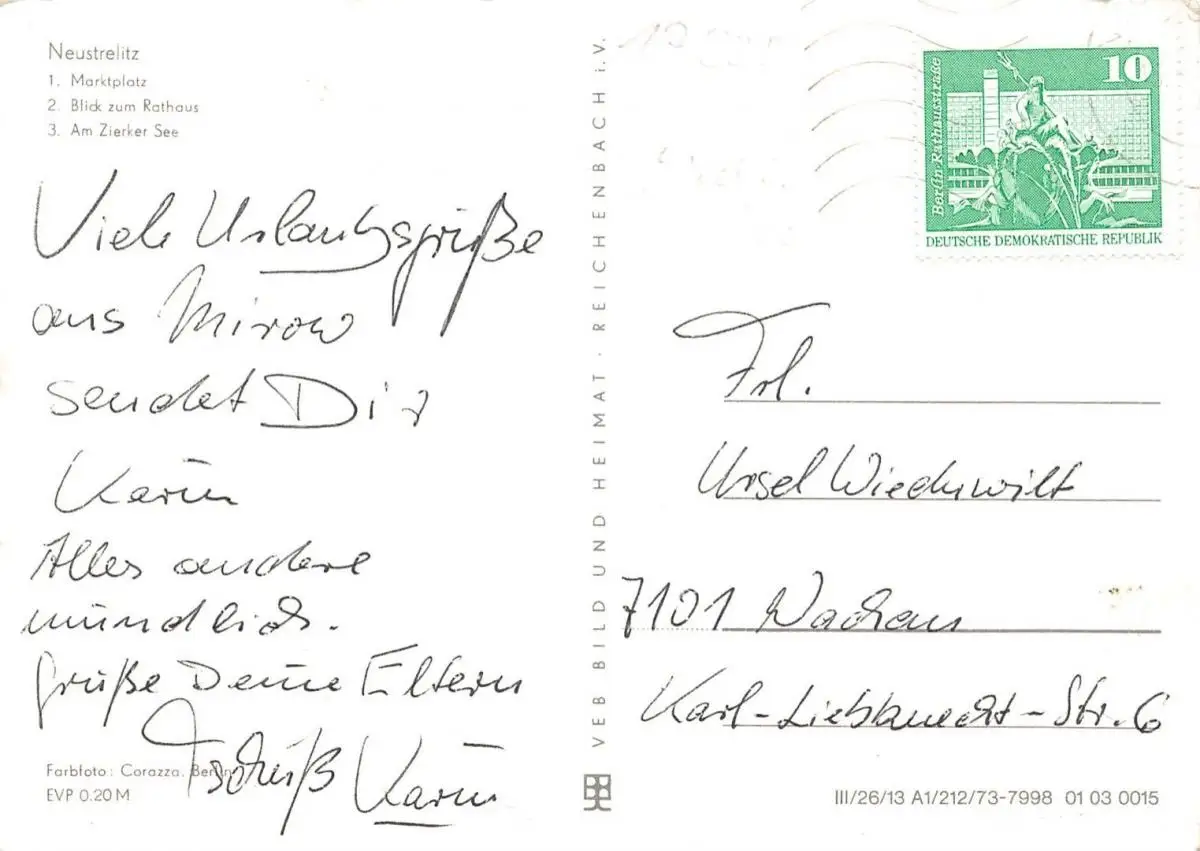 Neustrelitz
1. Marktplatz
2. Blick zum Rathaus
3. Am Zierker See
Viele Urlaubsgrüße
aus Mirow
sendet Dir
Karin
Alles andere
mündlich.
Grüße Deine Eltern
Tschüß Karin
Farbfoto: Corazza, Berlin
EVP 0.20 M
VEB BILD UND HEIMAT · REICHENBACH i. V.
10
Berlin-Rathausstraße
DEUTSCHE DEMOKRATISCHE REPUBLIK
Frl.
Ursel Wiederwilt
7101 Wachau
Karl-Liebknecht-Str. 6
III/26/13 A1/212/73-7998 01 03 0015